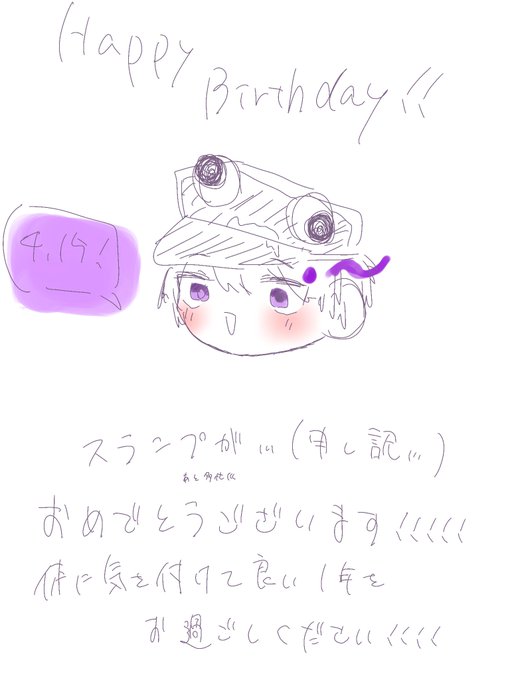 Happy
Birthday!!
4.19!
スランプが…(申し訳…)
あと多忙!!
おめでとうございます!!!!!
体に気を付けて良い1年を
お過ごしください!!!!